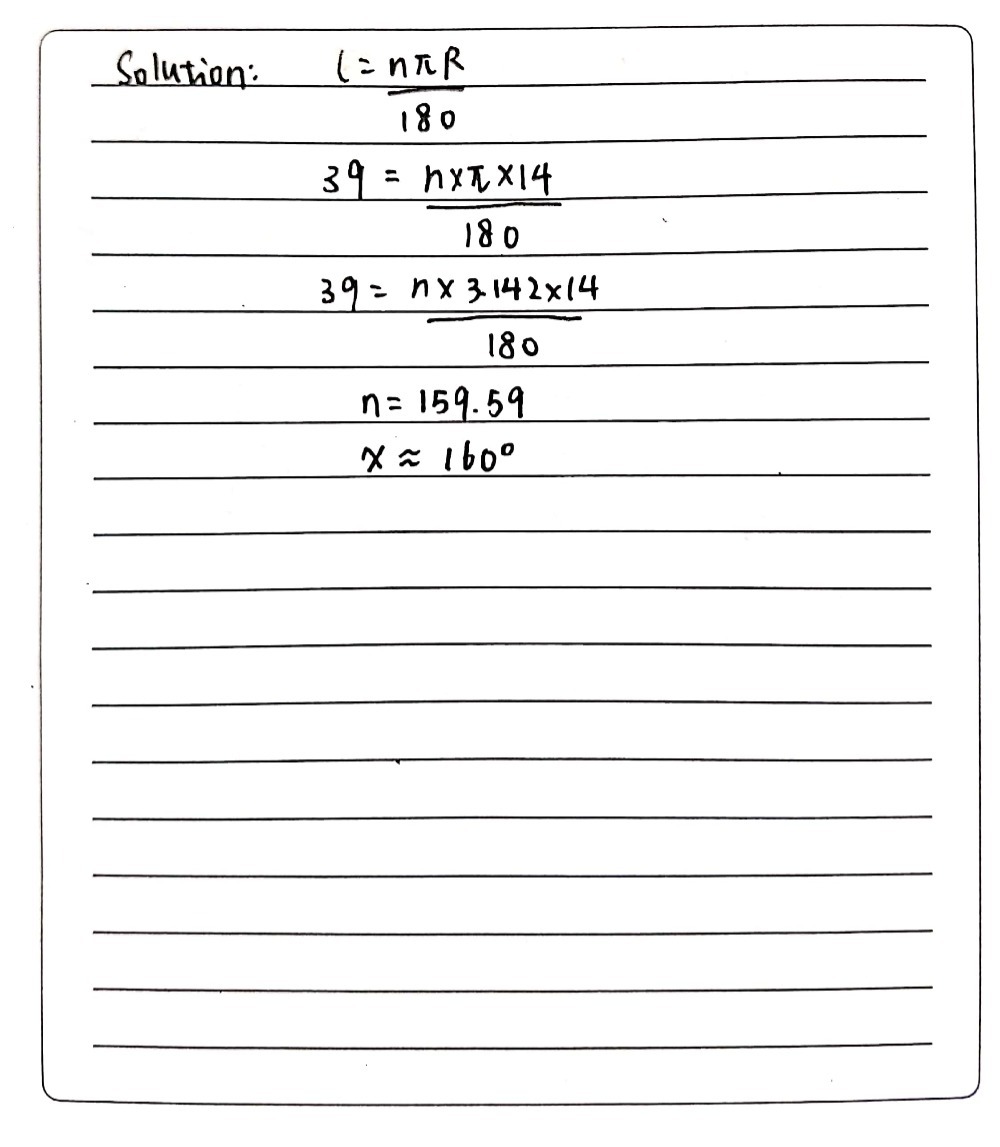 Solution: l = nπR
180
39 = n×π×14
180
39 = n× 3.142×14
180
n = 159.59
x ≈ 160°